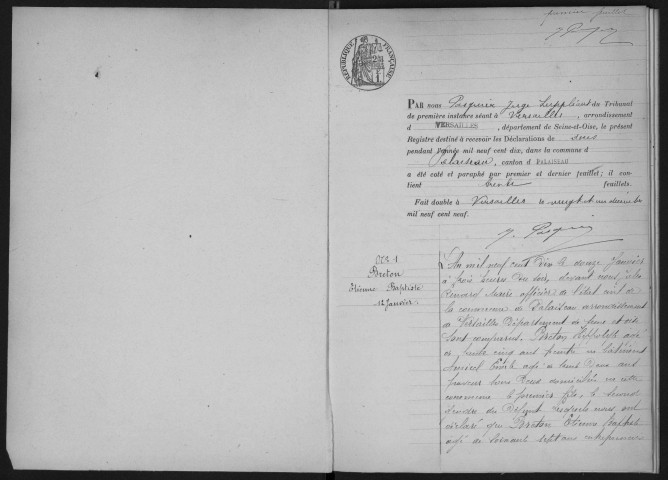 premier feuillet
RÉPUBLIQUE FRANÇAISE
PAR nous Pasquier Juge Suppléant du Tribunal
de première instance séant à Versailles, arrondissement
d VERSAILLES, département de Seine-et-Oise, le présent
Registre destiné à recevoir les Déclarations de décès
pendant l'année mil neuf cent dix, dans la commune d
Palaiseau, canton d PALAISEAU
a été coté et paraphé par premier et dernier feuillet; il con-
tient trente feuillets.
Fait double à Versailles le vingt et un décembre
mil neuf cent neuf.
Pasquier
Acte 1
Breton
Etienne Baptiste
12 Janvier.
L'An mil neuf cent dix le douze Janvier
à trois heures du soir, devant nous
officier de l'état civil de
la commune de Palaiseau arrondissement
de Versailles Département de Seine et Oise
sont comparus Breton Hippolyte âgé
de trente cinq ans peintre en bâtiment
Emile âgé de trente deux ans
tous deux domiciliés en cette
commune le premier fils, le second
gendre du Défunt lesquels nous ont
déclaré que Breton Etienne Baptiste
âgé de soixante sept ans entrepreneur